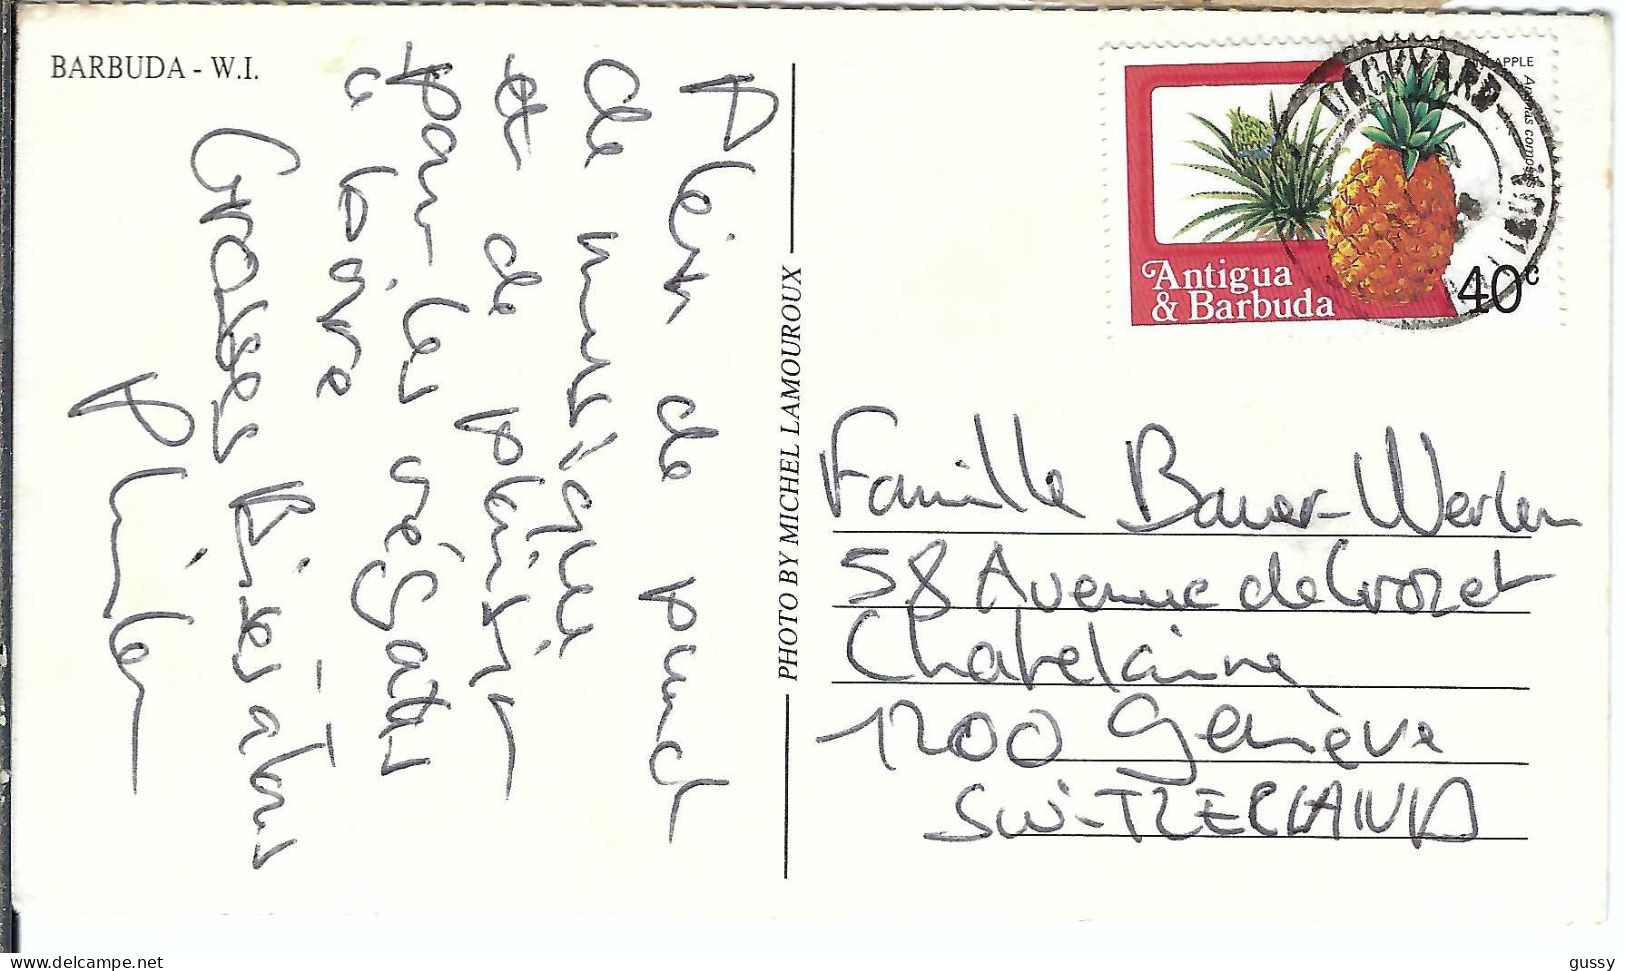 BARBUDA - W.I.
Plein de punch
de musique
et de plaisir
pour les régates
à la voire
Grosses Bises à tous
PHOTO BY MICHEL LAMOUROUX
APPLE
Antigua
& Barbuda
40c
Famille Bauer-Werlen
58 Avenue de Crozet
Chatelaine
1200 Genève
SWITZERLAND
delcampe.net
gussy